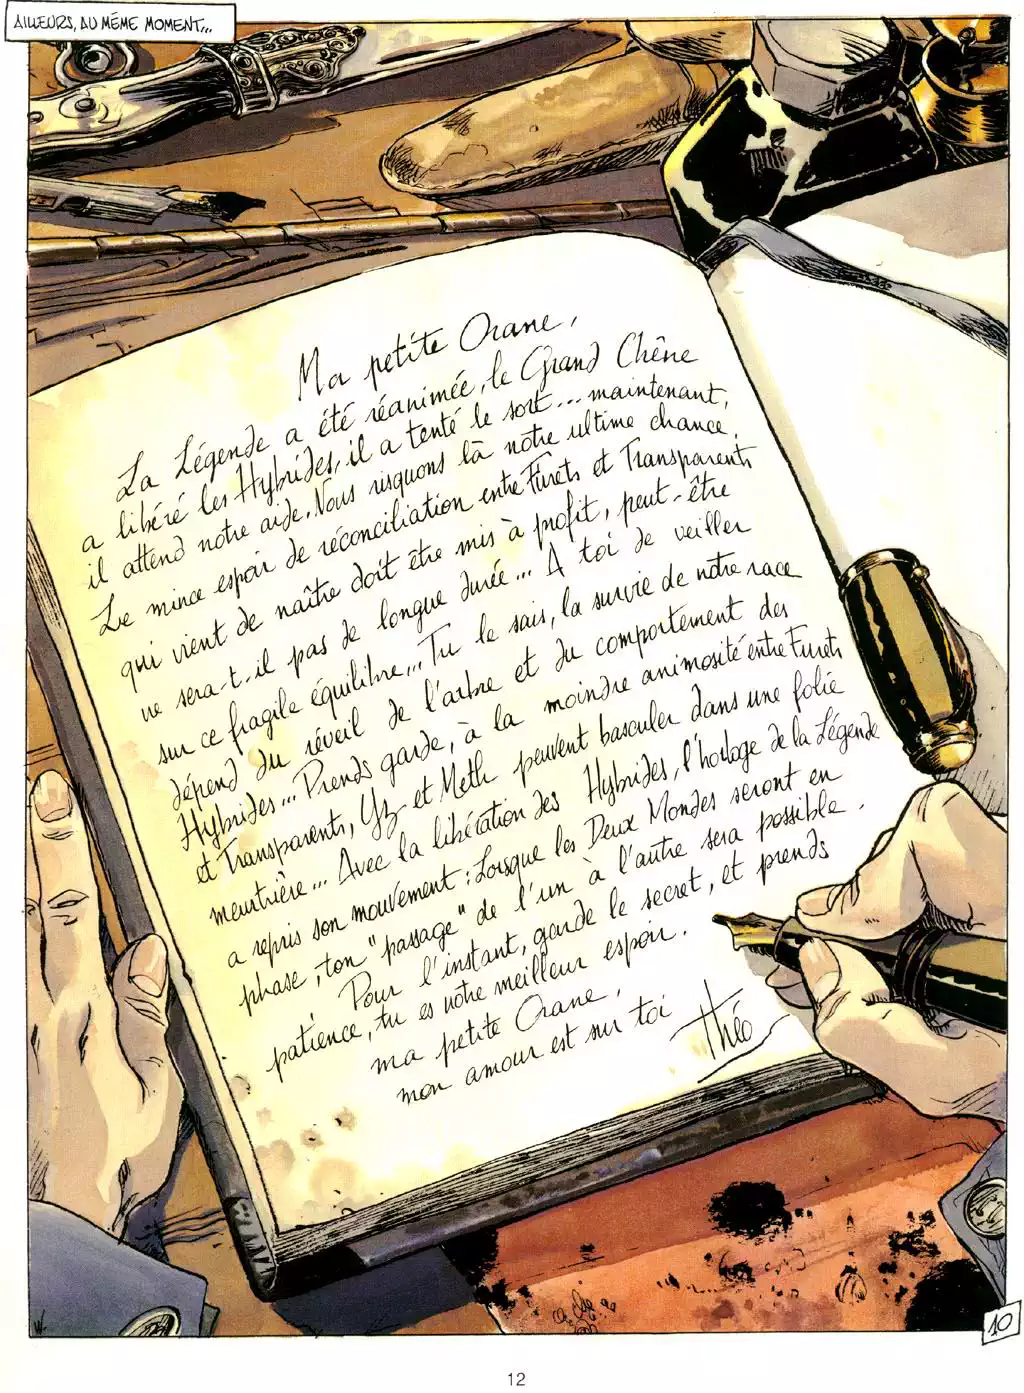 AILLEURS, AU MÊME MOMENT...
Ma petite Orane,
La Légende a été réanimée, le Grand Chêne
a libéré les Hybrides, il a tenté le sort... maintenant,
il attend notre aide. Nous risquons là notre ultime chance.
Le mince espoir de réconciliation entre Furets et Transparents
qui vient de naître doit être mis à profit, peut-être
ne sera-t-il pas de longue durée... A toi de veiller
sur ce fragile équilibre... Tu le sais, la survie de notre race
dépend du réveil de l'arbre et du comportement des
Hybrides... Prends garde, à la moindre animosité entre Furets
et Transparents, Yz et Meth peuvent basculer dans une folie
meurtrière... Avec la libération des Hybrides, l'horloge de la Légende
a repris son mouvement : Lorsque les Deux Mondes seront en
phase, ton "passage" de l'un à l'autre sera possible.
Pour l'instant, garde le secret, et prends
patience, tu es notre meilleur espoir.
ma petite Orane,
mon amour est sur toi
Théo
10
12